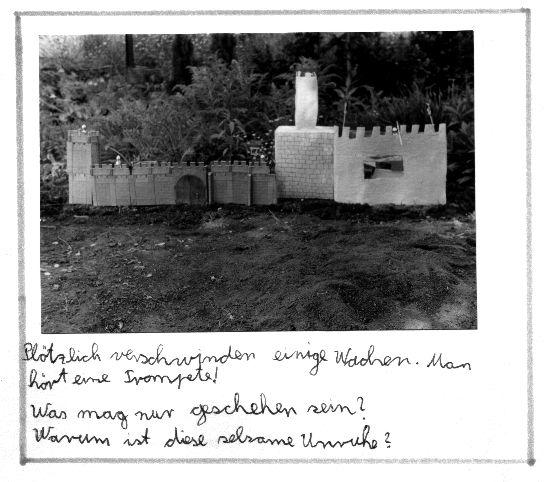 Plötzlich verschwinden einige Wachen. Man
hört eine Trompete!
Was mag nur geschehen sein?
Warum ist diese selsame Unruhe?